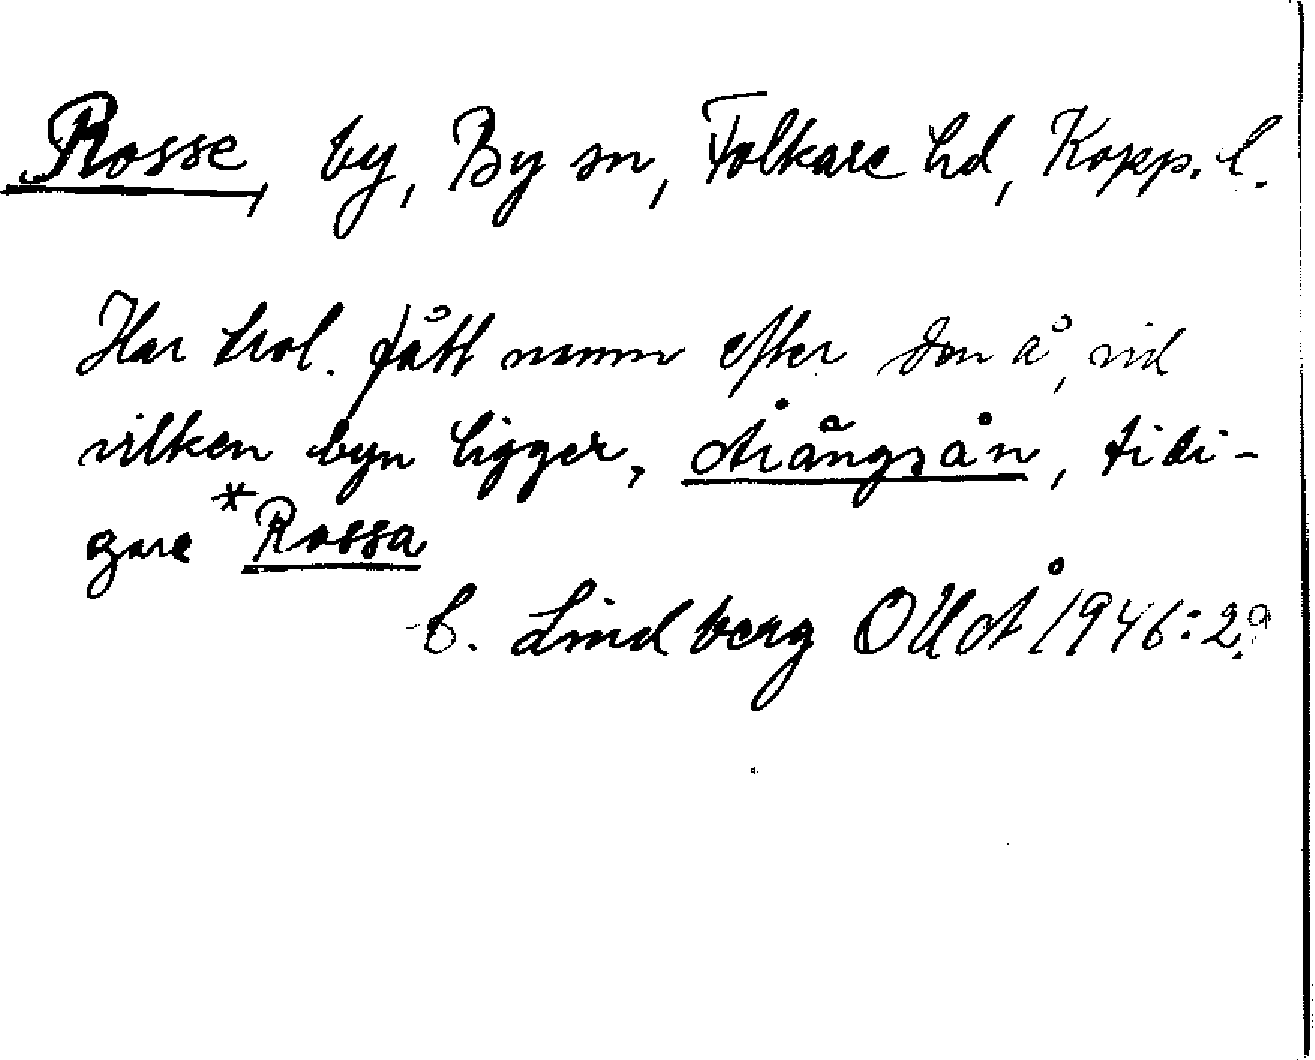 Rosse, by, By sn, Folkare hd, Kopp. l.
Har trol. fått namn efter den å, vid
vilken byn ligger, Årängsån, tidi-
gare *Rossa
C. Lindberg OUÅ 1946: 29